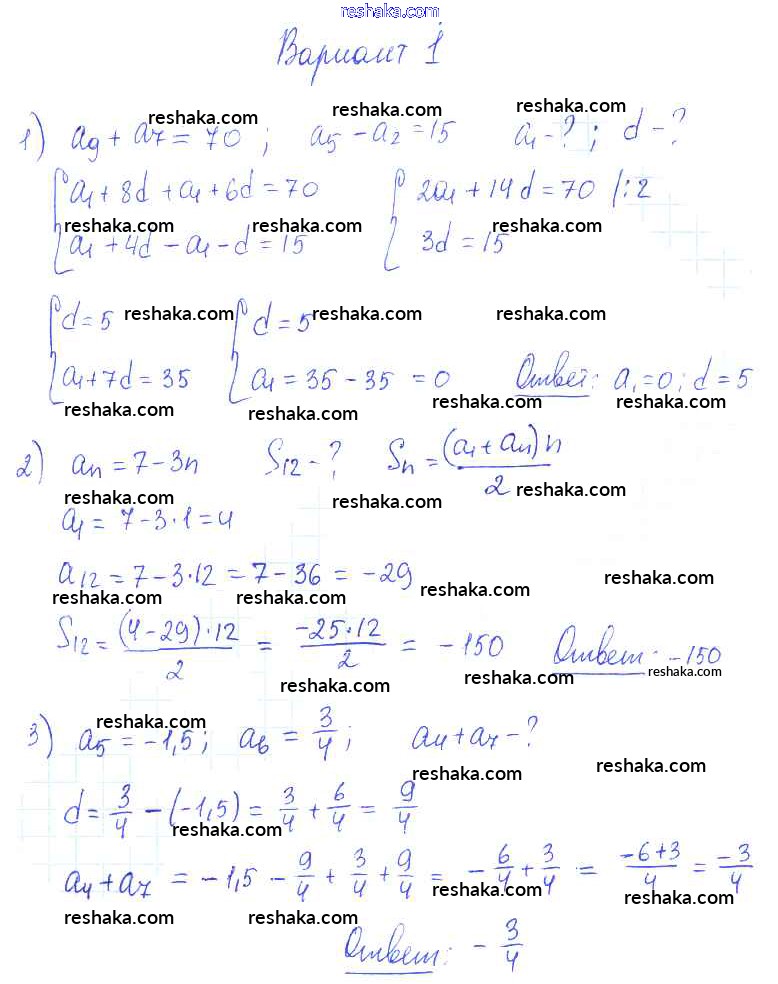 reshaka.com
Вариант 1
reshaka.com reshaka.com reshaka.com
1) a₉ + a₇ = 70 ; a₅ - a₂ = 15 a₁ - ? ; d - ?
reshaka.com reshaka.com reshaka.com
{ a₁ + 8d + a₁ + 6d = 70 { 2a₁ + 14d = 70 /:2
reshaka.com reshaka.com reshaka.com reshaka.com
a₁ + 4d - a₁ - d = 15 3d = 15
{ d = 5 reshaka.com { d = 5 reshaka.com reshaka.com
a₁ + 7d = 35 a₁ = 35 - 35 = 0 Ответ: a₁ = 0; d = 5
reshaka.com reshaka.com reshaka.com reshaka.com
2) aₙ = 7 - 3n S₁₂ - ? Sₙ = (a₁ + aₙ) n / 2
reshaka.com reshaka.com reshaka.com
a₁ = 7 - 3 · 1 = 4
a₁₂ = 7 - 3 · 12 = 7 - 36 = -29 reshaka.com reshaka.com
reshaka.com reshaka.com
S₁₂ = (4 - 29) · 12 / 2 = -25 · 12 / 2 = -150 Ответ: -150
reshaka.com reshaka.com reshaka.com
reshaka.com
3) a₅ = -1,5 ; a₆ = 3/4 ; a₄ + a₇ - ?
reshaka.com reshaka.com
d = 3/4 - (-1,5) = 3/4 + 6/4 = 9/4
reshaka.com
a₄ + a₇ = -1,5 - 9/4 + 3/4 + 9/4 = -6/4 + 3/4 = -6+3/4 = -3/4
reshaka.com reshaka.com reshaka.com reshaka.com
Ответ: - 3/4